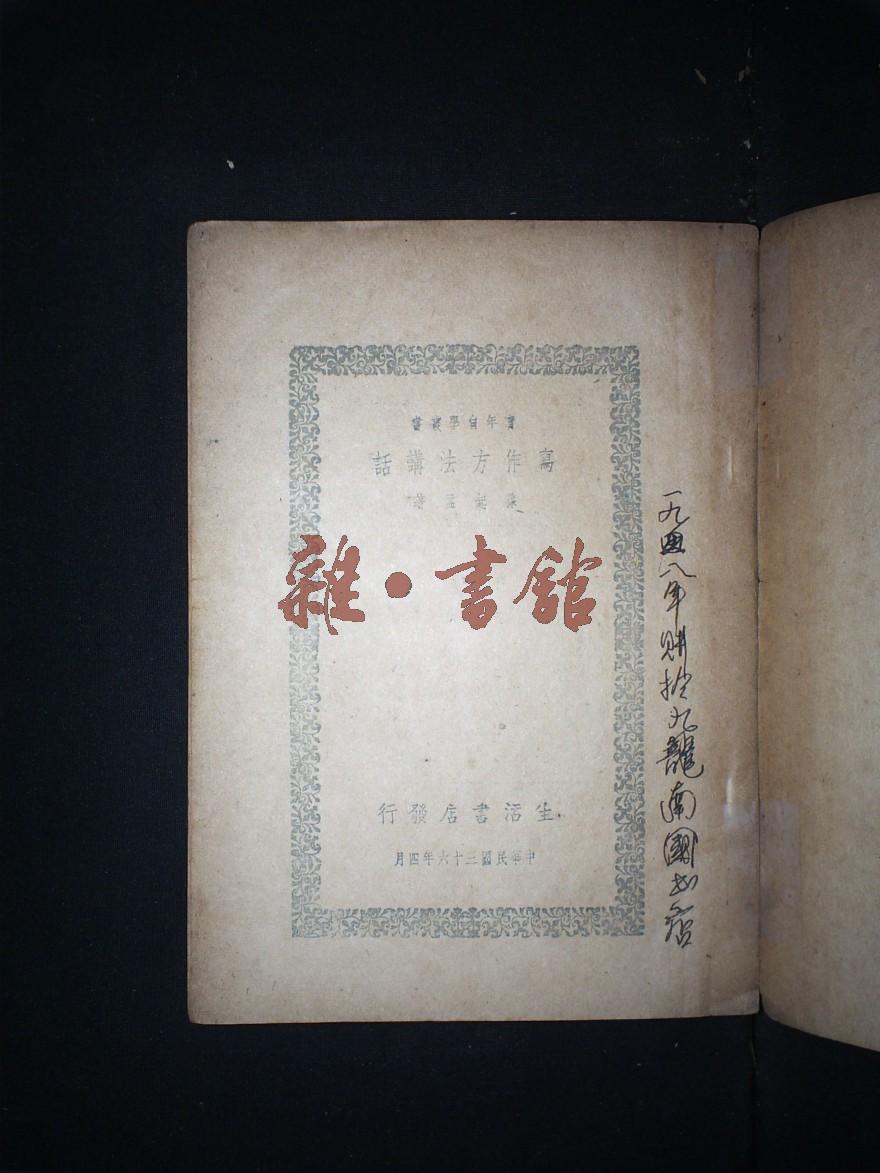 青年自學叢書
寫作方法講話
孟
著
雜·書館
生活書店發行
中華民國三十六年四月
一九四八年購於九龍南國書店